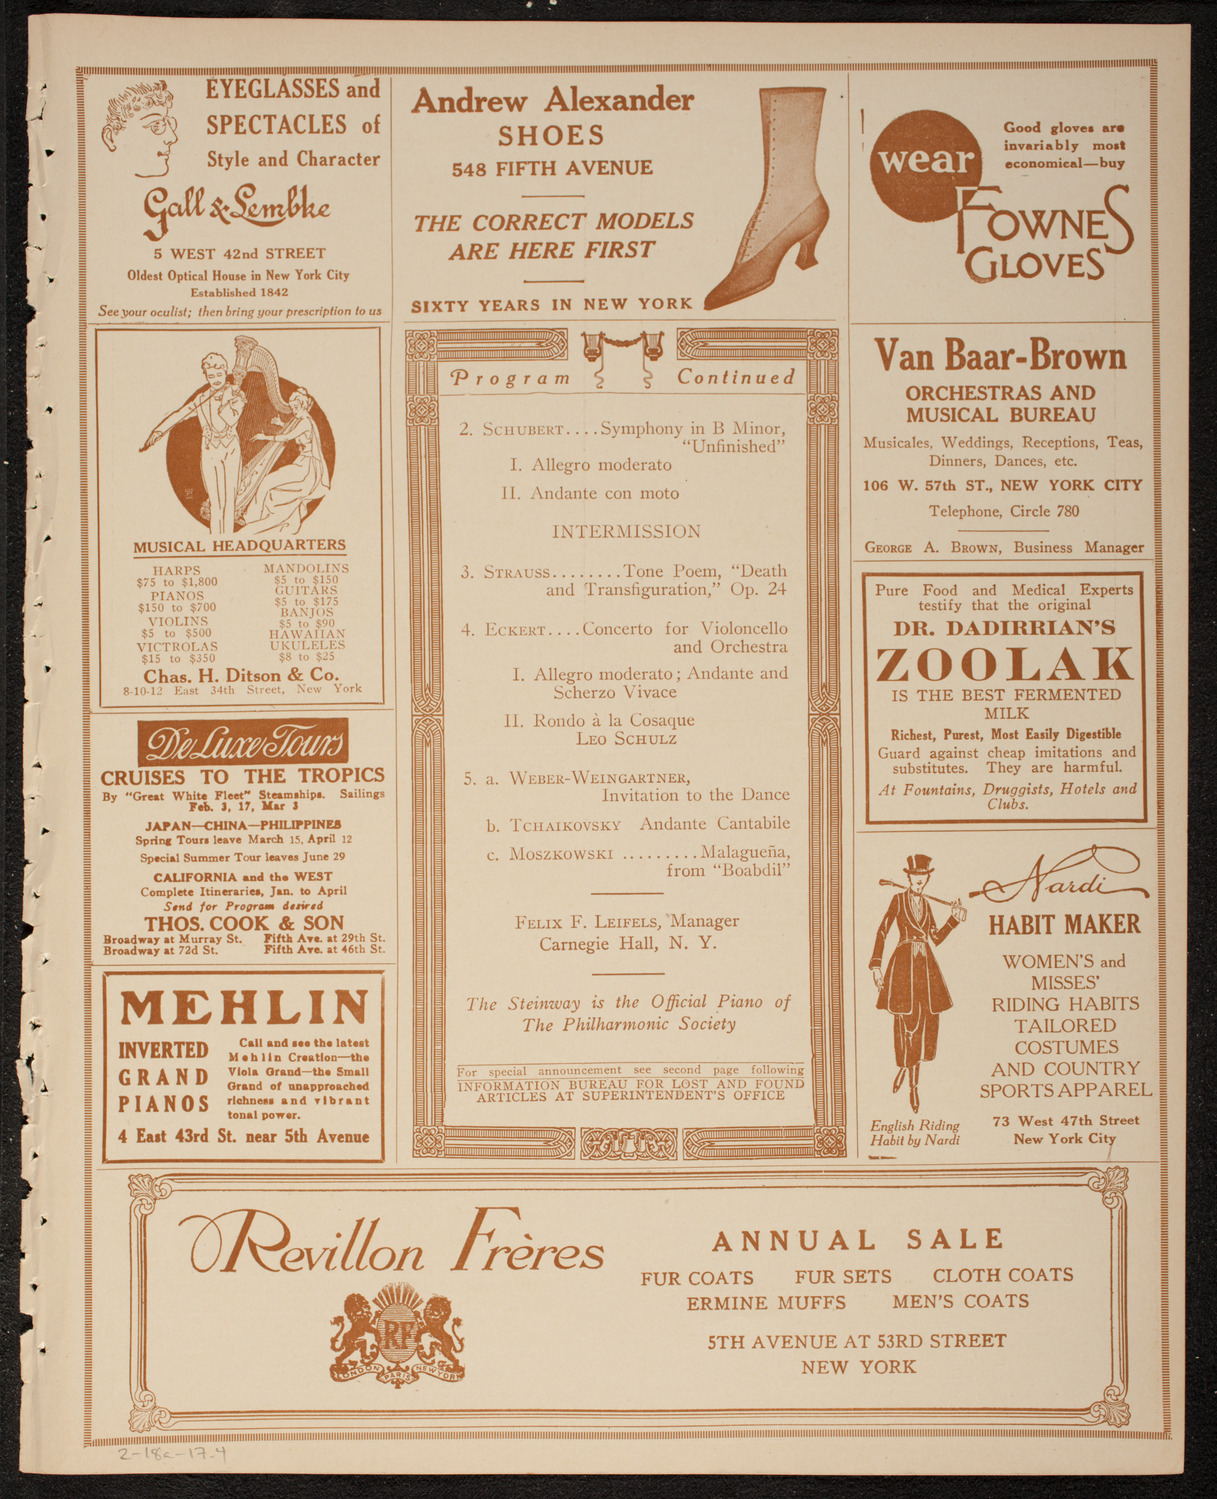 EYEGLASSES and
SPECTACLES of
Style and Character
Gall & Lembke
5 WEST 42nd STREET
Oldest Optical House in New York City
Established 1842
See your oculist; then bring your prescription to us
Andrew Alexander
SHOES
548 FIFTH AVENUE
THE CORRECT MODELS
ARE HERE FIRST
SIXTY YEARS IN NEW YORK
wear
Good gloves are
invariably most
economical—buy
FOWNES
GLOVES
MUSICAL HEADQUARTERS
HARPS
$75 to $1,800
PIANOS
$150 to $700
VIOLINS
$5 to $500
VICTROLAS
$15 to $350
MANDOLINS
$5 to $150
GUITARS
$5 to $175
BANJOS
$5 to $90
HAWAIIAN
UKULELES
$8 to $25
Chas. H. Ditson & Co.
8-10-12 East 34th Street, New York
De Luxe Tours
CRUISES TO THE TROPICS
By "Great White Fleet" Steamships. Sailings
Feb. 3, 17, Mar 3
JAPAN—CHINA—PHILIPPINES
Spring Tours leave March 15, April 12
Special Summer Tour leaves June 29
CALIFORNIA and the WEST
Complete Itineraries, Jan. to April
Send for Program desired
THOS. COOK & SON
Broadway at Murray St. Fifth Ave. at 29th St.
Broadway at 72d St. Fifth Ave. at 46th St.
MEHLIN
INVERTED
GRAND
PIANOS
Call and see the latest
Mehlin Creation—the
Viola Grand—the Small
Grand of unapproached
richness and vibrant
tonal power.
4 East 43rd St. near 5th Avenue
Program Continued
2. SCHUBERT....Symphony in B Minor,
"Unfinished"
I. Allegro moderato
II. Andante con moto
INTERMISSION
3. STRAUSS........Tone Poem, "Death
and Transfiguration," Op. 24
4. ECKERT....Concerto for Violoncello
and Orchestra
I. Allegro moderato; Andante and
Scherzo Vivace
II. Rondo à la Cosaque
LEO SCHULZ
5. a. WEBER-WEINGARTNER,
Invitation to the Dance
b. TCHAIKOVSKY Andante Cantabile
c. MOSZKOWSKI .........Malagueña,
from "Boabdil"
FELIX F. LEIFELS, Manager
Carnegie Hall, N. Y.
The Steinway is the Official Piano of
The Philharmonic Society
For special announcement see second page following
INFORMATION BUREAU FOR LOST AND FOUND
ARTICLES AT SUPERINTENDENT'S OFFICE
Van Baar-Brown
ORCHESTRAS AND
MUSICAL BUREAU
Musicales, Weddings, Receptions, Teas,
Dinners, Dances, etc.
106 W. 57th ST., NEW YORK CITY
Telephone, Circle 780
GEORGE A. BROWN, Business Manager
Pure Food and Medical Experts
testify that the original
DR. DADIRRIAN'S
ZOOLAK
IS THE BEST FERMENTED
MILK
Richest, Purest, Most Easily Digestible
Guard against cheap imitations and
substitutes. They are harmful.
At Fountains, Druggists, Hotels and
Clubs.
Nardi
HABIT MAKER
WOMEN'S and
MISSES'
RIDING HABITS
TAILORED
COSTUMES
AND COUNTRY
SPORTS APPAREL
English Riding
Habit by Nardi
73 West 47th Street
New York City
Revillon Frères
RF
LONDON PARIS NEW YORK
ANNUAL SALE
FUR COATS FUR SETS CLOTH COATS
ERMINE MUFFS MEN'S COATS
5TH AVENUE AT 53RD STREET
NEW YORK
2-18a-17-4